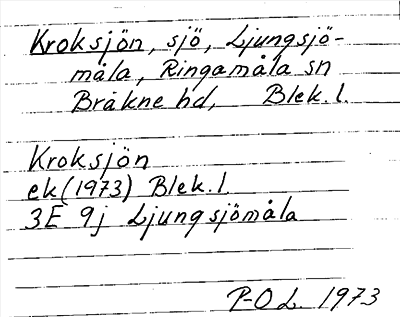 Kroksjön, sjö, Ljungsjö-
måla, Ringamåla sn
Bräkne hd, Blek. l.
Kroksjön
ek (1973) Blek. l.
3E 9j Ljungsjömåla
P-O L. 1973